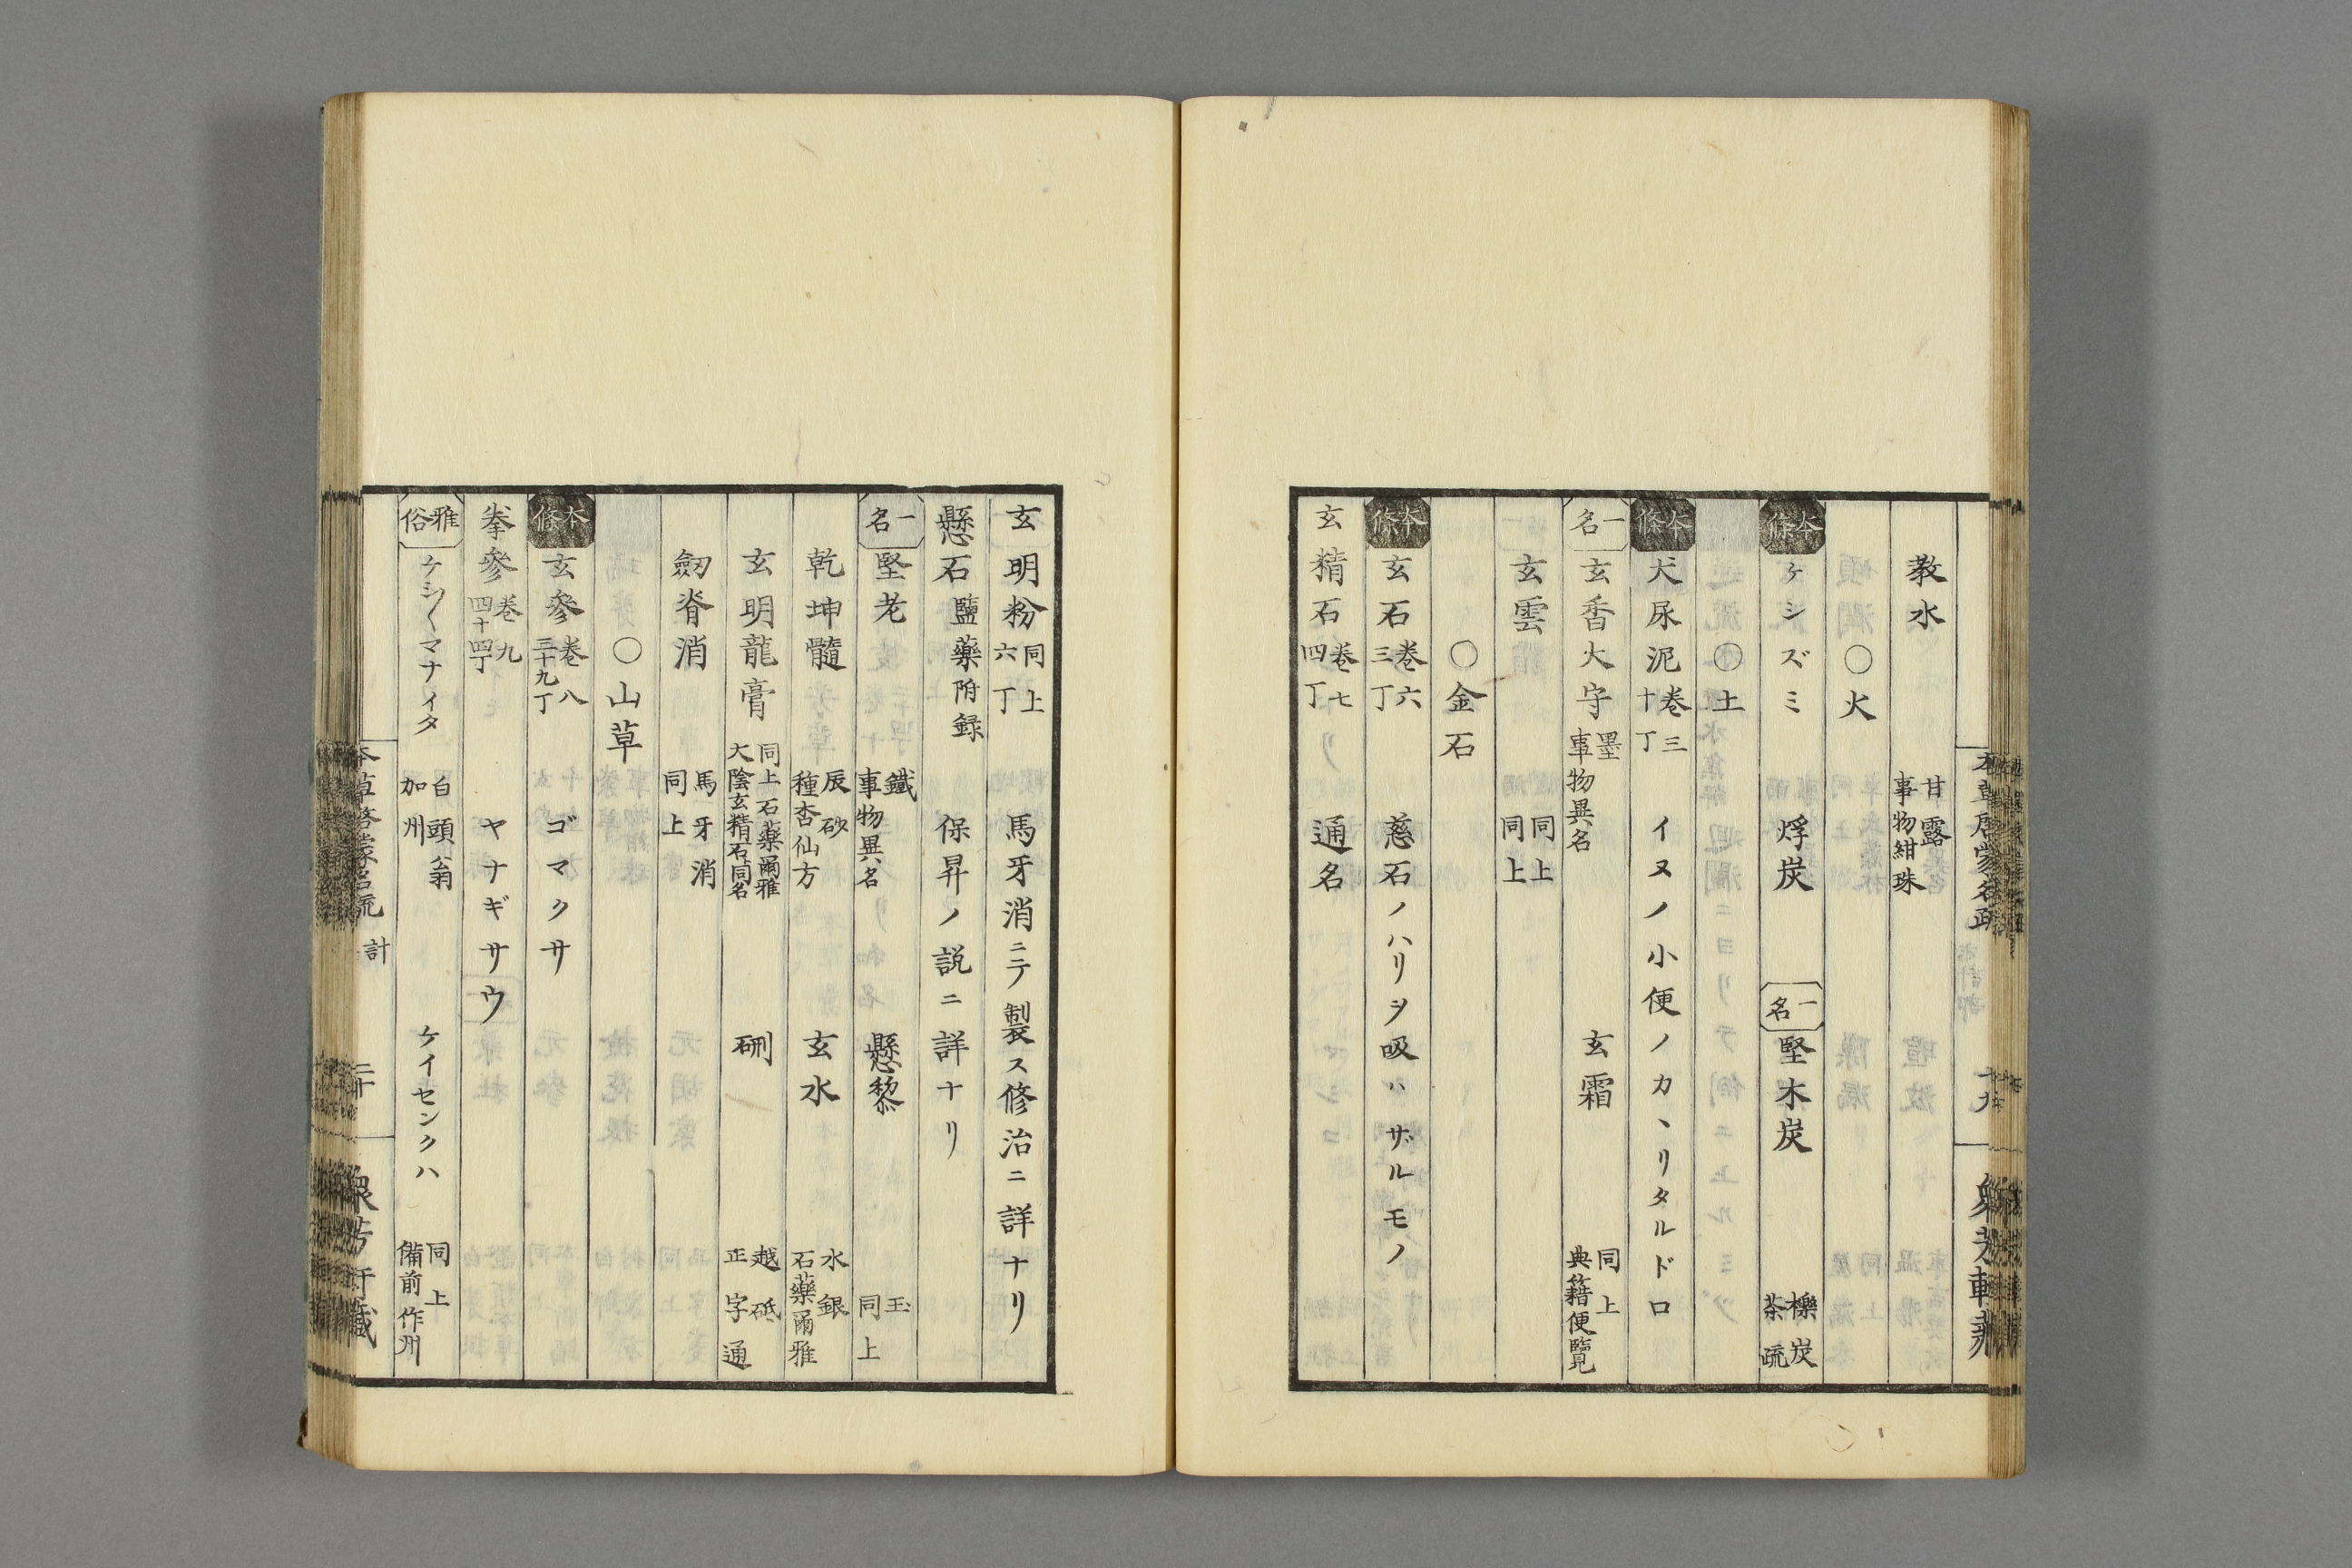 敎水 甘露 事物紺珠
〇火
本條 ケシズミ 烰炭 一名 堅木炭 櫟炭 茶疏
〇土
本條 犬尿泥 卷三 十丁 イヌノ小便ノカヽリタルドロ
一名 玄香太守 墨 事物異名 玄霜 同上 典籍便覽
玄雲 同上 同上
〇金石
本條 玄石 卷六 三丁 慈石ノハリヲ吸ハザルモノ
玄精石 卷七 四丁 通名
玄明粉 同上 六丁 馬牙消ニテ製ス修治ニ詳ナリ
懸石 鹽藥附録 保昇ノ説ニ詳ナリ
一名 堅老 鐵 事物異名 懸黎 玉 同上
乾坤髓 辰砂 種杏仙方 玄水 水銀 石藥爾雅
玄明龍膏 同上 石藥爾雅 大陰玄精石同名 硎 越砥 正字通
劒脊消 馬牙消 同上
〇山草
本條 玄參 卷八 三十九丁 ゴマクサ
拳參 卷九 四十四丁 ヤナギサウ
雅俗 ケシ〱マナイタ 白頭翁 加州 ケイセンクハ 同上 備前作州
本草啓蒙名疏 計 二十 衆芳軒藏